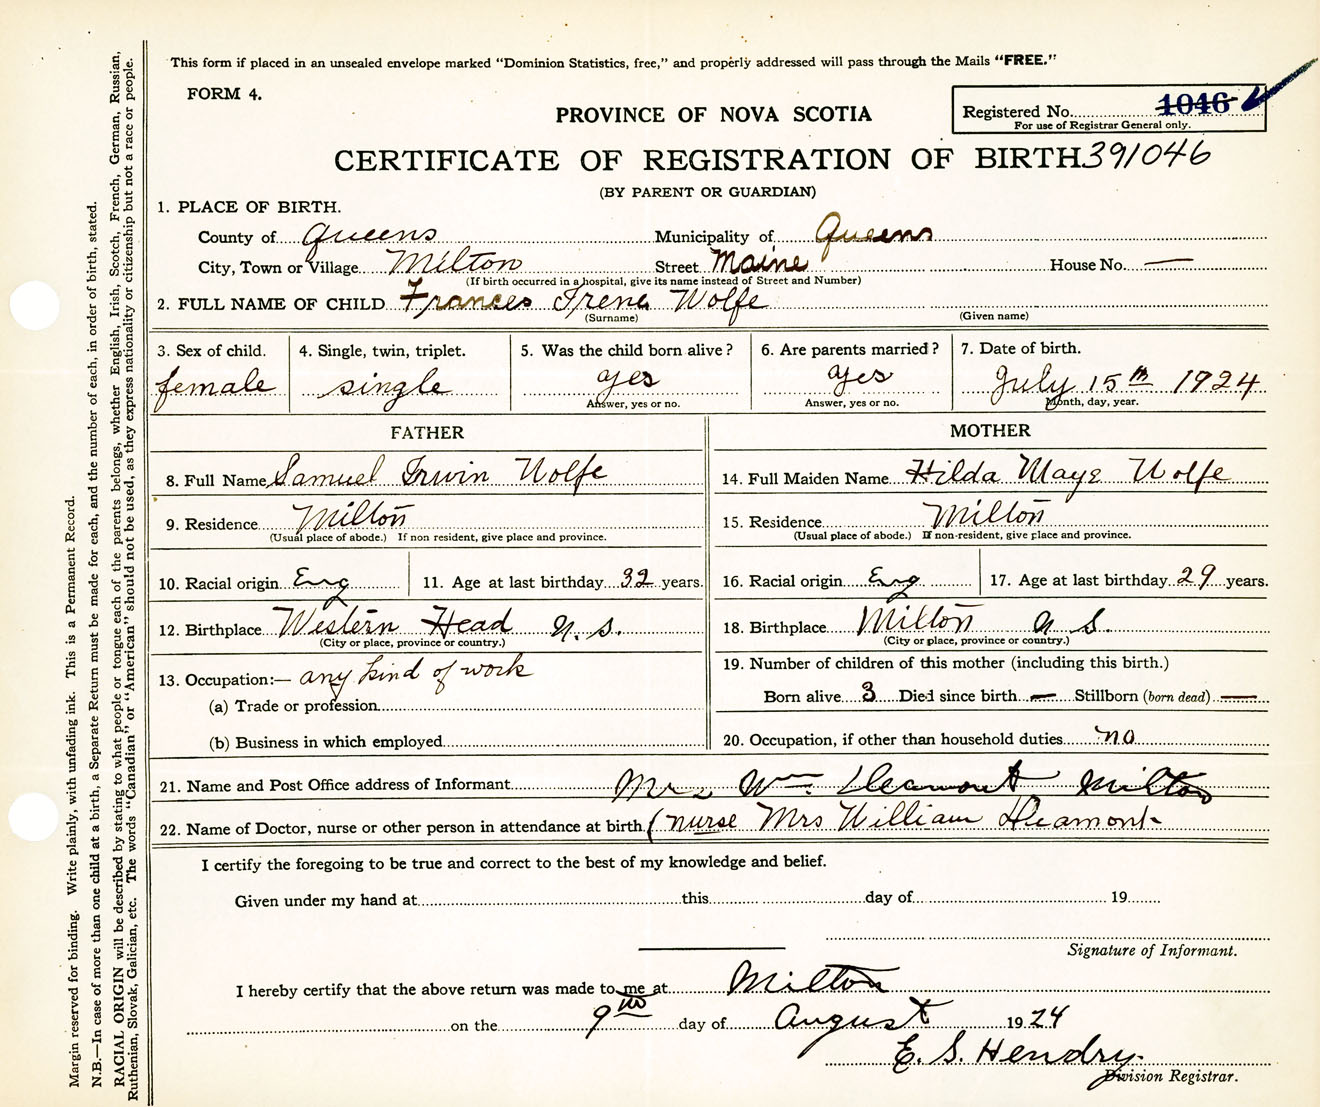 This form if placed in an unsealed envelope marked "Dominion Statistics, free," and properly addressed will pass through the Mails "FREE."
FORM 4.
PROVINCE OF NOVA SCOTIA
Registered No. 1046
For use of Registrar General only.
CERTIFICATE OF REGISTRATION OF BIRTH 391046
(BY PARENT OR GUARDIAN)
1. PLACE OF BIRTH.
County of Queens Municipality of Queens
City, Town or Village Milton Street Maine House No. —
(If birth occurred in a hospital, give its name instead of Street and Number)
2. FULL NAME OF CHILD Frances Irene Wolfe
(Surname) (Given name)
3. Sex of child. 4. Single, twin, triplet. 5. Was the child born alive? 6. Are parents married? 7. Date of birth.
female single yes yes July 15th 1924
Answer, yes or no. Answer, yes or no. Month, day, year.
FATHER MOTHER
8. Full Name Samuel Irwin Wolfe 14. Full Maiden Name Hilda Maye Wolfe
9. Residence Milton 15. Residence Milton
(Usual place of abode.) If non resident, give place and province. (Usual place of abode.) If non-resident, give place and province.
10. Racial origin Eng 11. Age at last birthday 32 years. 16. Racial origin Eng 17. Age at last birthday 29 years.
12. Birthplace Western Head N.S. 18. Birthplace Milton N S.
(City or place, province or country.) (City or place, province or country.)
13. Occupation:— any kind of work 19. Number of children of this mother (including this birth.)
(a) Trade or profession Born alive 3 Died since birth — Stillborn (born dead) —
(b) Business in which employed 20. Occupation, if other than household duties no
21. Name and Post Office address of Informant Mrs Wm. Deamont Milton
22. Name of Doctor, nurse or other person in attendance at birth (nurse Mrs William Deamont
I certify the foregoing to be true and correct to the best of my knowledge and belief.
Given under my hand at this day of 19
Signature of Informant.
I hereby certify that the above return was made to me at Milton
on the 9th day of August 1924
E. S. Hendry.
Division Registrar.
Margin reserved for binding. Write plainly, with unfading ink. This is a Permanent Record.
N.B.—In case of more than one child at a birth, a Separate Return must be made for each, and the number of each, in order of birth, stated.
RACIAL ORIGIN will be described by stating to what people or tongue each of the parents belongs, whether English, Irish, Scotch, French, German, Russian,
Ruthenian, Slovak, Galician, etc. The words "Canadian" or "American" should not be used, as they express nationality or citizenship but not a race or people.